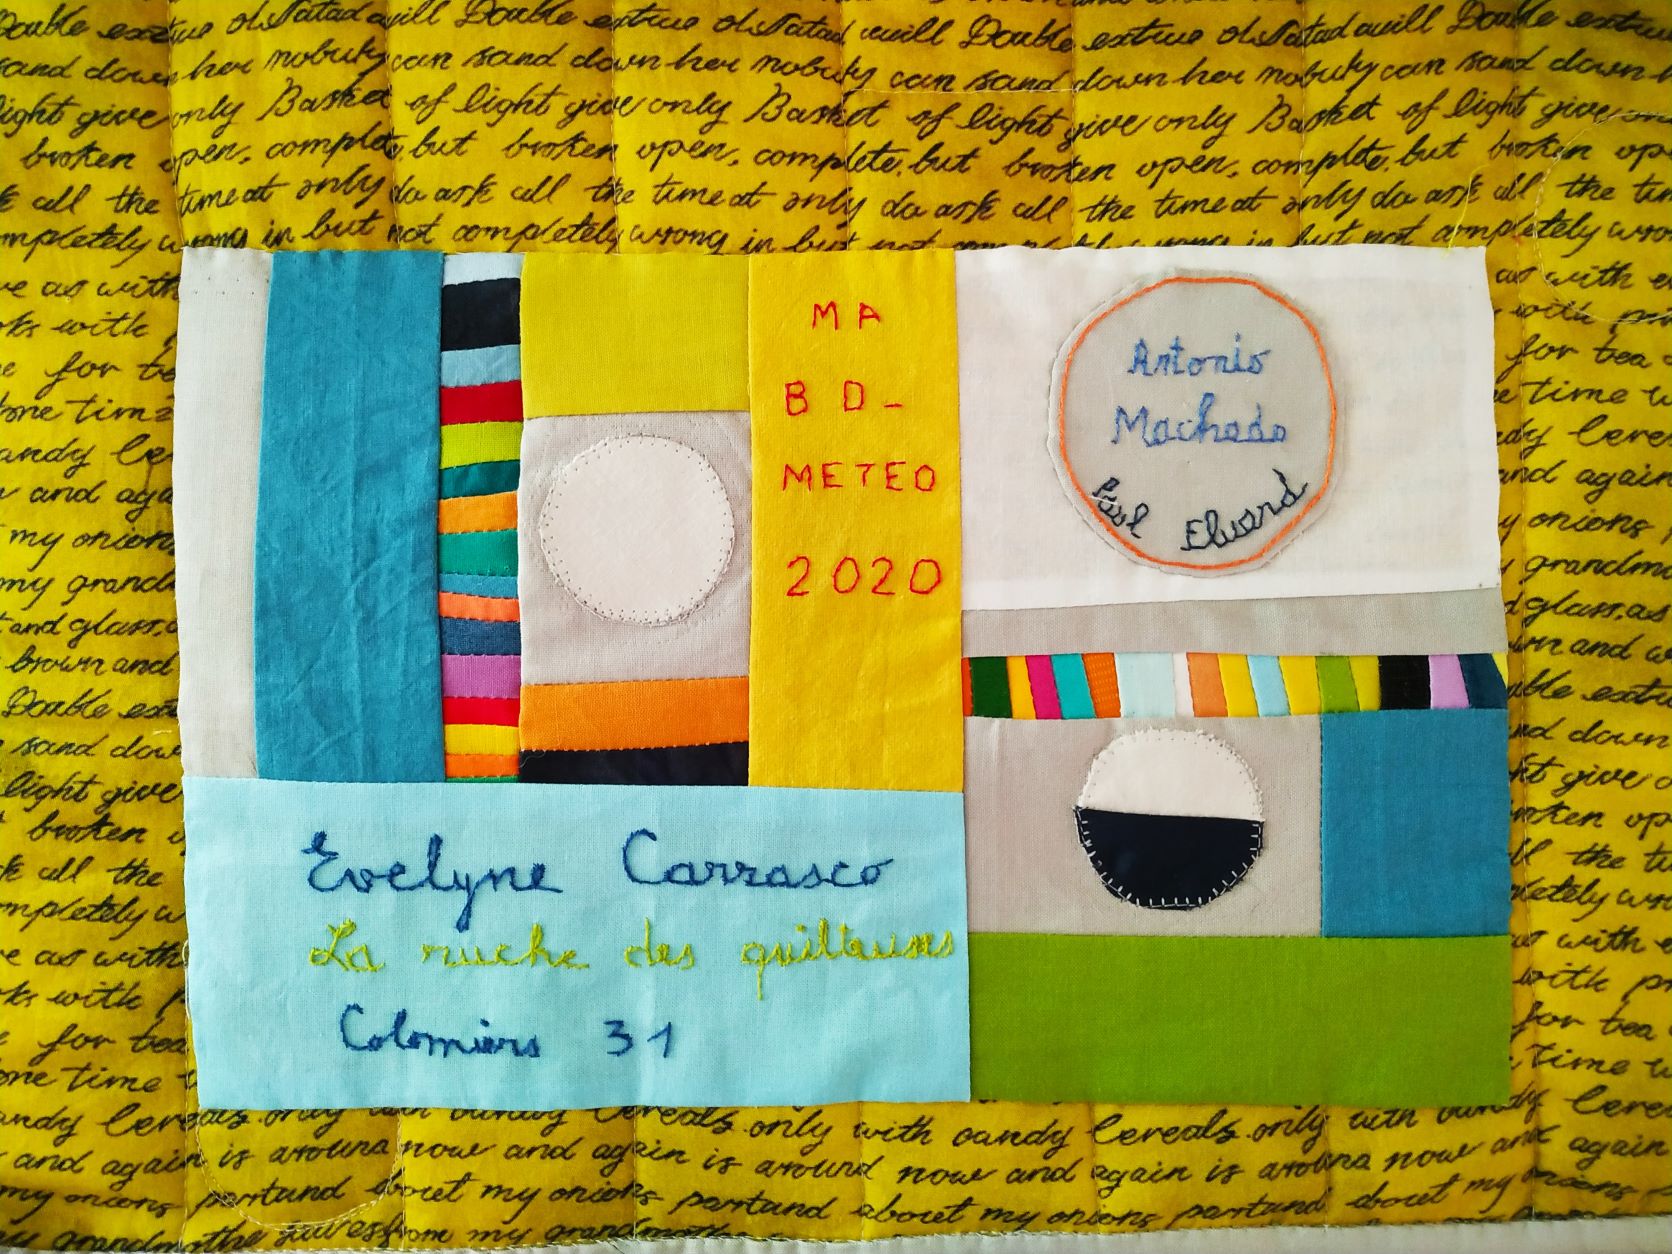 Double extrue ol satad will Double extrue ol satad will Double extrue ol satad will Double
sand down her nobuky can sand down her nobuky can sand down her nobuky can sand down
light give only Basket of light give only Basket of light give only Basket of light give
broken open, complete, but broken open, complete, but broken open, complete, but broken
all the time at only do ask all the time at only do ask all the time at only do ask all the
completely wrong in but not completely wrong in but not completely
MA
BD_
METEO
2020
Antonio
Machado
Paul Eluard
Evelyne Carrasco
La ruche des quilteuses
Colomiers 31
Cereals only with candy Cereals only with candy Cereals only with candy
and again is around now and again is around now and again is around now and again
my onions partund about my onions partund about my onions partund about my
from my grandmothe